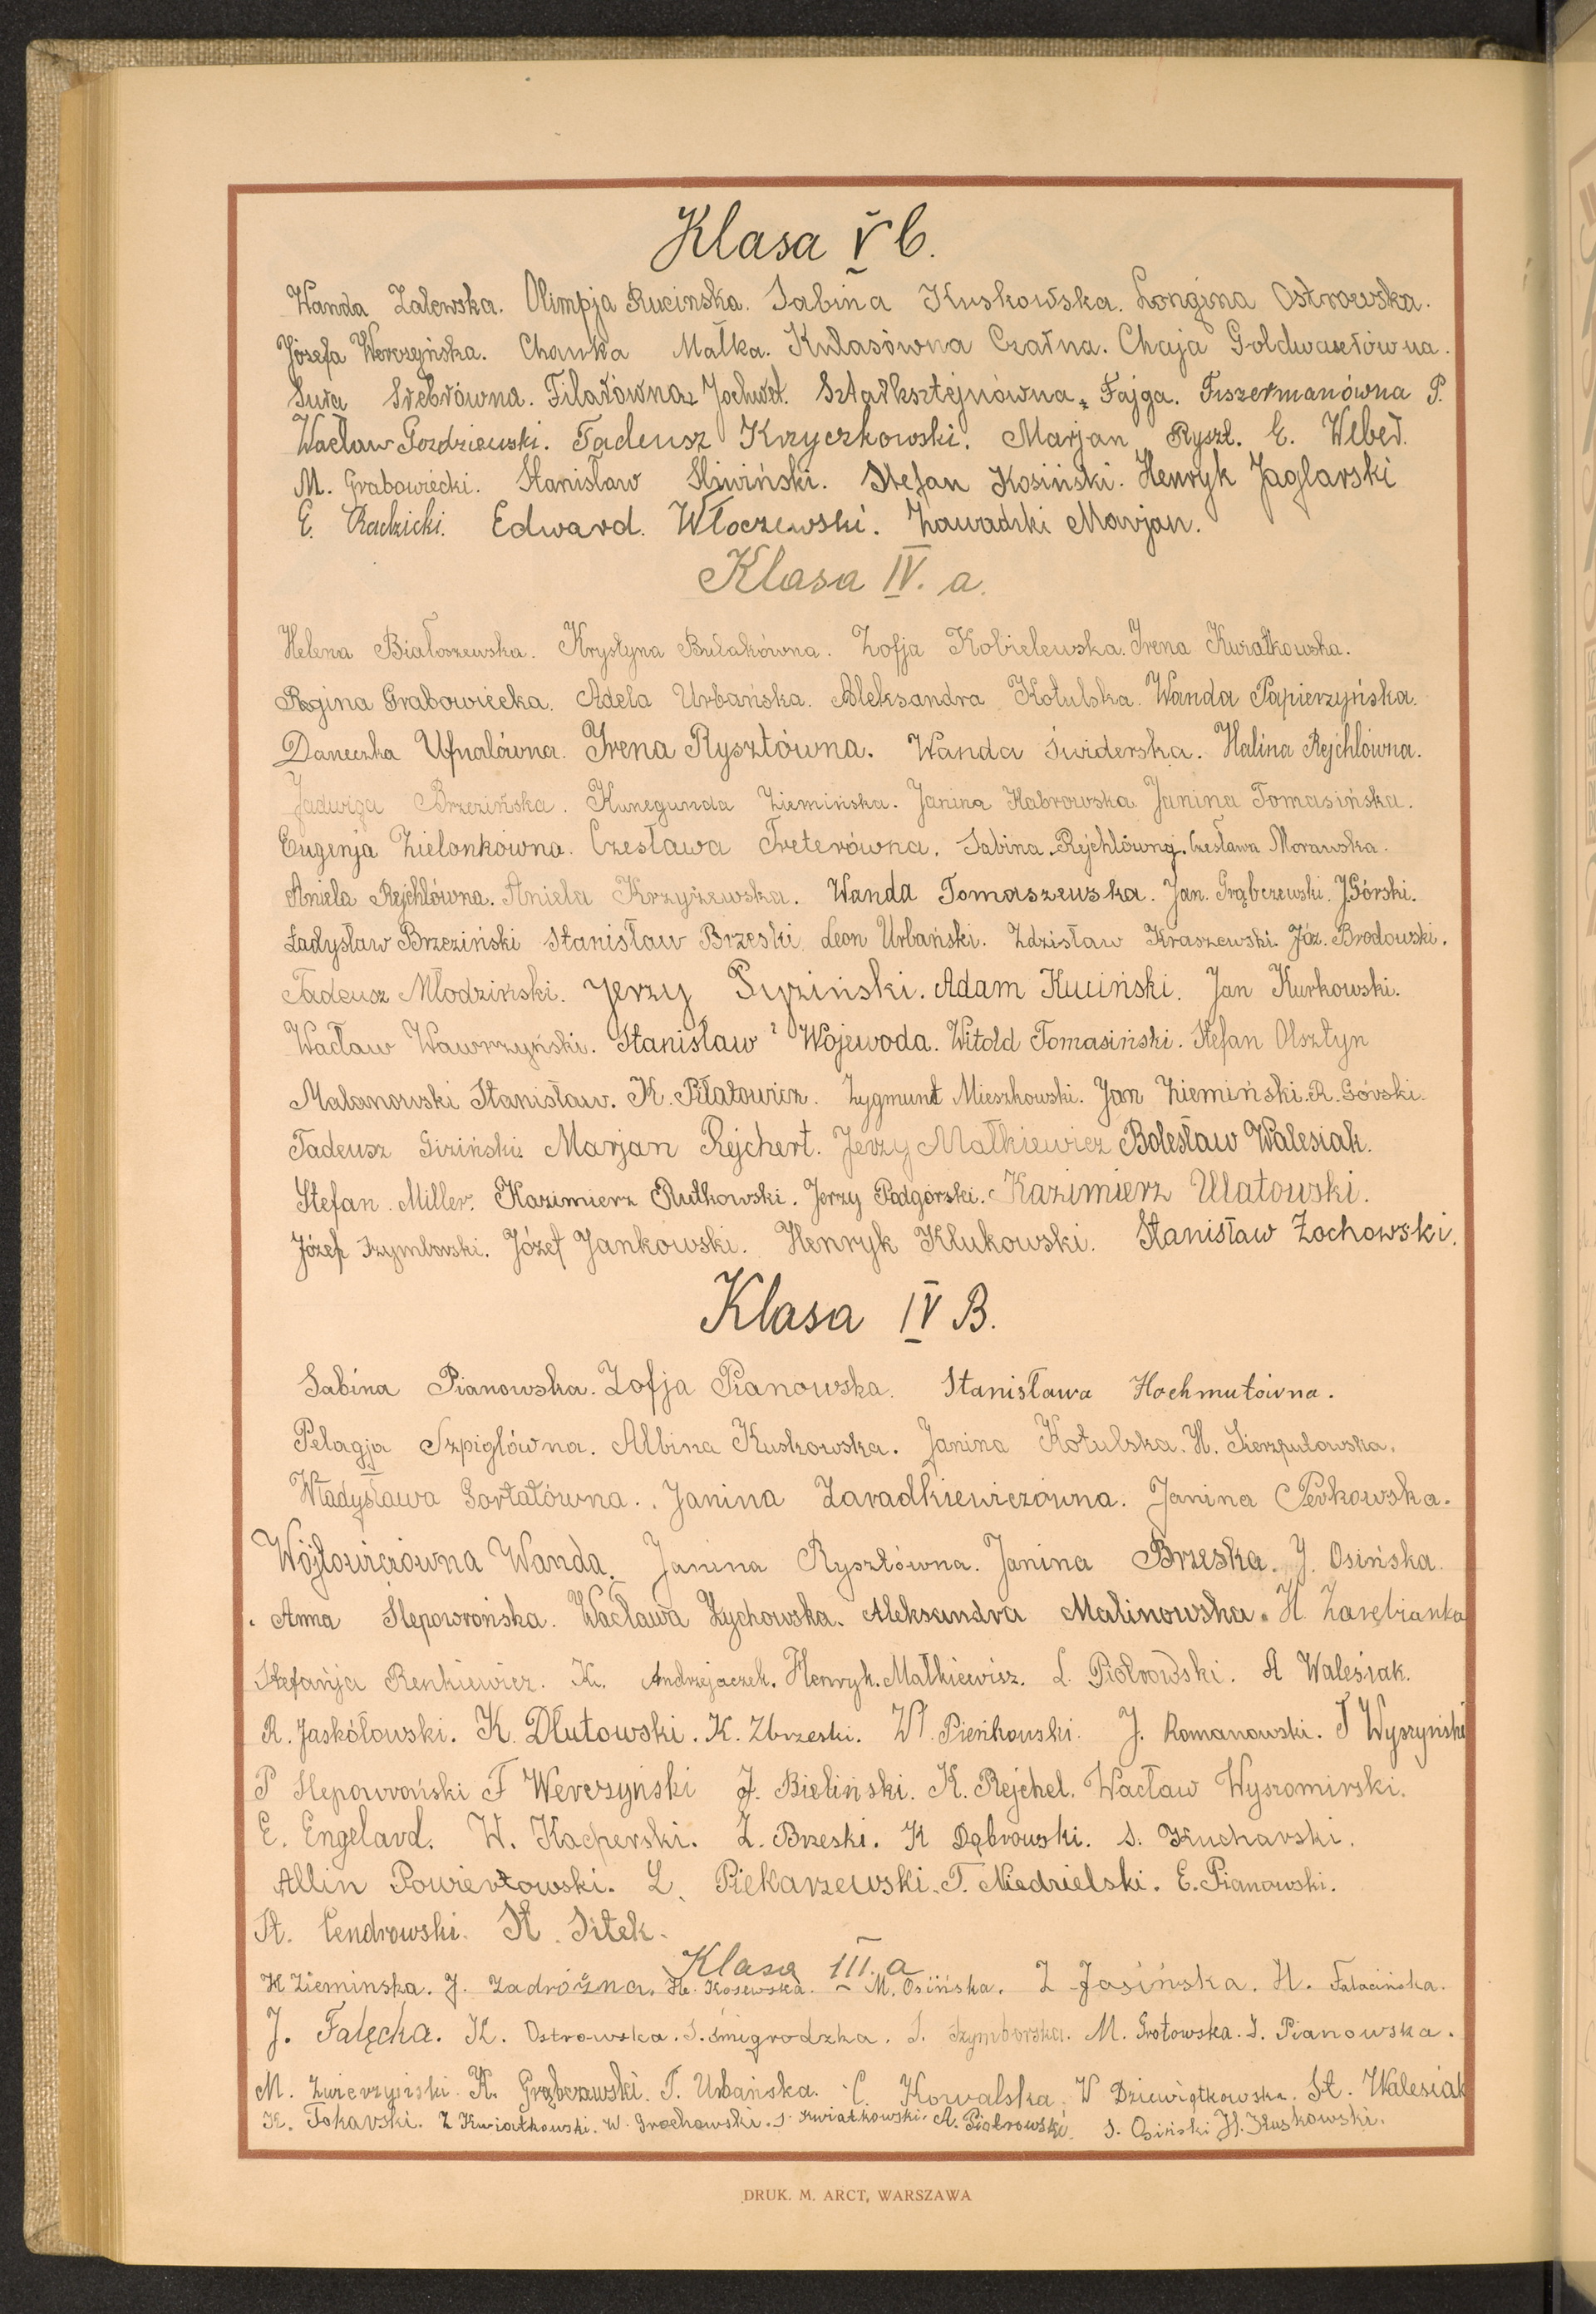 Klasa V b.
Wanda Zalewska. Olimpja Rucinska. Sabina Kuskowska. Longina Ostrowska.
Józefa Werczyńska. Chawka Małka. Kułasówna Czarna. Chaja Goldwaserówna.
Sura Srebrówna. Filarówna Jochwet. Sztarksztejnówna Fajga. Fiszermanówna P.
Wacław Gozdziewski. Tadeusz Krzyczkowski. Marjan Ryszt. E. Weber.
M. Grabowiecki. Stanisław Sliwiński. Stefan Kosiński. Henryk Jaglarski
E. Radzicki. Edward. Włoczewski. Zawadzki Marjan.
Klasa IV. a.
Helena Białoszewska. Krystyna Bulakówna. Zofja Kobielewska. Irena Kwiatkowska.
Regina Grabowiecka. Adela Urbańska. Aleksandra Kotulska. Wanda Papierzyńska.
Daneczka Ufnalówna. Irena Rysztówna. Wanda Świderska. Halina Rejchlówna.
Jadwiga Brzezińska. Kunegunda Ziemińska. Janina Habrowska Janina Tomasińska.
Eugenja Zielonkówna. Czesława Treterówna. Sabina Rejchlówna. Czesława Morawska.
Aniela Rejchlówna. Aniela Krzyżewska. Wanda Tomaszewska. Jan. Grąbczewski. J. Górski.
Ładysław Brzeziński Stanisław Brzeski Leon Urbański. Zdzisław Kraszewski. Józ. Brodowski.
Tadeusz Młodziński. Jerzy Adam Kuciński. Jan Kurkowski.
Wacław Wawrzyński. Stanisław Wojewoda. Witold Tomasiński. Stefan Olsztyn
Malanowski Stanisław. K. Piłatowicz. Zygmunt Mieszkowski. Jan Ziemiński. R. Górski.
Tadeusz Giziński Marjan Rejchert. Jerzy Małkiewicz Bolesław Walesiak.
Stefan Miller. Kazimierz Rutkowski. Jerzy Podgórski. Kazimierz Ulatowski.
Józef Szymborski. Józef Jankowski. Henryk Klukowski. Stanisław Żochowski.
Klasa IV B.
Sabina Pianowska. Zofja Pianowska. Stanisława Hochmutówna.
Pelagja Szpiglówna. Albina Kuskowska. Janina Kotulska. H. Sierzputowska.
Władysława Gortatówna. Janina Zaradkiewiczówna. Janina Perkowska.
Wójtowiczówna Wanda. Janina Rysztówna. Janina Brzeska. J. Osińska.
Anna Slepowrońska. Wacława Żychowska. Aleksandra Malinowska. H. Zarębianka
Stefanja Renkiewicz. K. Andrzejaczek. Henryk. Małkiewicz. L. Piotrowski. A Walesiak.
R. Jaskółowski. K. Dłutowski. K. Zbrzeski. Wł. Pieńkowski. J. Romanowski. T Wyszyński
P Slepowroński F Werczyński J. Bieliński. K. Rejchel. Wacław Wyszomirski.
E. Engelard. W. Kacperski. Z. Brzeski. K Dąbrowski. S. Kucharski.
Allin Powierżowski. L. Piekarzewski. T. Niedzielski. E. Pianowski.
St. Cendrowski. St. Sitek.
Klasa III. a
H Zieminska. J. Zadróżna. He. Kosewska. M. Osińska. Z Jasińska. H. Falacińska.
J. Falęcka. K. Ostrowska. S. Śmigrodzka. S. Szymborska. M. Grotowska. S. Pianowska.
M. Zwierzyński. K. Grąbczewski. T. Urbańska. C. Kowalska. W Dziewiątkowska. St. Walesiak
K. Tokarski. Z Kwiatkowski. W. Grochowski. S. Kwiatkowski. A. Piotrowski. S. Osiński H. Kuskowski.
DRUK. M. ARCT, WARSZAWA